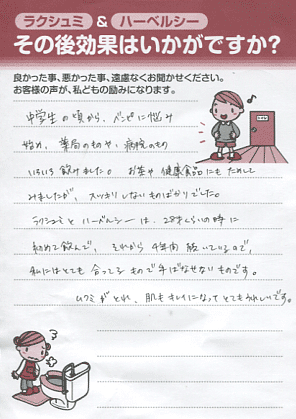 ラクシュミ & ハーベルシー
その後効果はいかがですか？
良かった事、悪かった事、遠慮なくお聞かせください。
お客様の声が、私どもの励みになります。
中学生の頃から、ベンピに悩み
始め、薬局のものや、病院のもの
いろいろ飲みました。 お茶や健康食品にもためして
みましたが、スッキリしないものばかりでした。
ラクシュミとハーベルシーは、28才くらいの時に
初めて飲んで、それから 年間 続いているので、
私にはとても合ってるもので手ばなせないものです。
ムクミがとれ、肌もキレイになってとてもうれしいです。